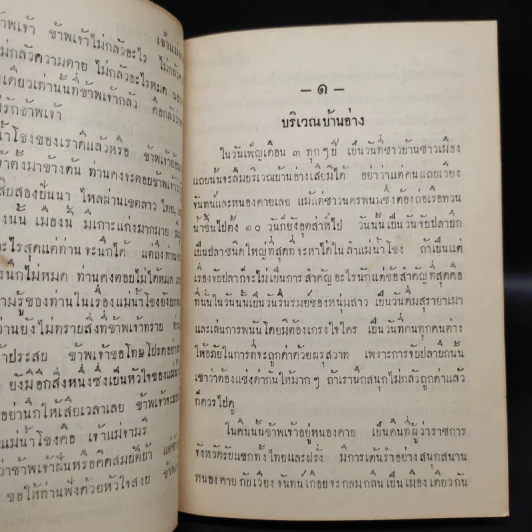 เจ้าแม่
พเจ้า ข้าพเจ้าไม่กลัวอะไร ไม่กลัว
ไม่กลัวความตาย ไม่กลัวอะไรหมด
เดียวเท่านั้นที่ข้าพเจ้ากลัว คือกลัว
รักข้าพเจ้า
น้ำโขงของเราดีแล้วหรือ ข้าพเจ้า
ตั้งมาข้างต้น ท่านคงจะตอบข้าพเจ้า
สองยืนนา ไหลผ่านเขตลาว ไทย,
นั้น เมืองนี้ มีเกาะแก่งมากมาย
อะไรสุดแต่ท่านจะนึกได้ แต่ถึงท่าน
นึกไม่หมด ท่านคงตอบไม่ได้หมด
รู้ของท่านในเรื่องแม่น้ำโขงยัง
ท่านยังไม่ทราบสิ่งที่ข้าพเจ้าทราบ ท่าน
ประสบ ข้าพเจ้าขอโทษโปรดอย่า
ยังมีอีกสิ่งหนึ่งซึ่งเป็นหัวใจของแม่
อย่านึกให้เสียเวลาเลย ข้าพเจ้าจะ
แม่น้ำโขงคือ เจ้าแม่จามรี
ว่าข้าพเจ้าฝันหรือคิดสมบัติบ้า แต่ข้า
ขอให้ท่านฟังด้วยหัวใจสงบ ข้าพเจ้า
– ๑ –
บริเวณบ้านอ่าง
ในวันเพ็ญเดือน ๓ ทุกๆปี เป็นวันที่ชาวบ้านชาวเมือง
แถบนั้นจะลืมบริเวณบ้านอ่างเสียมิได้ อย่าว่าแต่คนแถบเวียง
จันทน์และหนองคายเลย แม้แต่ชาวนครพนมซึ่งต้องถ่อเรือทวน
น้ำขึ้นไปตั้ง ๑๐ วันก็ยังอุตส่าห์ไป วันนั้นเป็นวันจับปลาบึก
เป็นปลาชนิดใหญ่ที่สุดที่จะหาได้ในลำแม่น้ำโขง ถ้าเป็นแต่
เรื่องจับปลาก็จะไม่เป็นการสำคัญอะไรนักแต่ข้อสำคัญที่สุดคือ
ที่นั้นในวันนั้นเป็นวันรื่นรมย์ของหนุ่มสาว เป็นวันดื่มสุรายาเมา
และเล่นการพนันโดยมิต้องเกรงใจใคร เป็นวันที่คนทุกคนต่าง
ให้อภัยในการที่จะถูกด่าด้วยผรุสวาท เพราะการจับปลาบึกนั้น
เขาว่าต้องแช่งด่ากันให้มากๆ ถ้าเรานึกสนุกไม่กลัวถูกด่าแล้ว
ก็ควรไปดู
ในคืนนั้นข้าพเจ้าอยู่หนองคาย เป็นคืนที่ผู้ว่าราชการ
จังหวัดรับแขกทั้งไทยและฝรั่ง มีการเต้นรำอย่างสนุกสนาน
หนองคายกับเวียงจันทน์เกือบจะกลมกลืนเป็นเมืองเดียวกัน